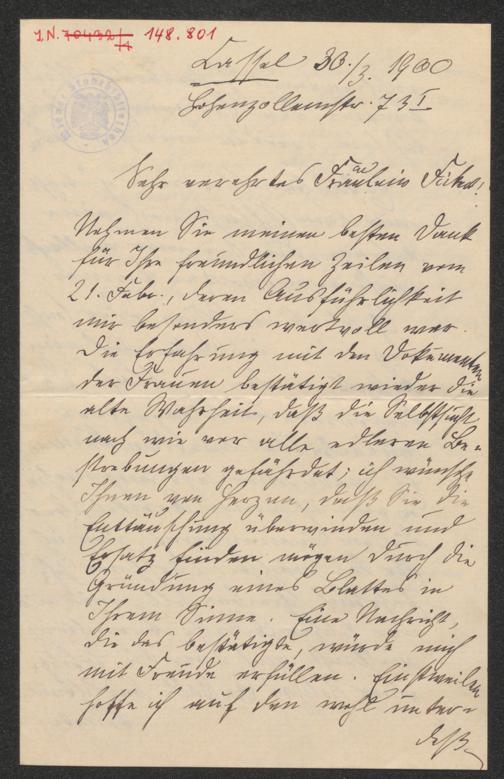 I.N. 70432/1 148.801
Cassel 30./3. 1900
Hohenzollernstr. 73 I
Sehr verehrtes Fräulein Fickert!
Nehmen Sie meinen besten Dank
für Ihre freundlichen Zeilen vom
21. Febr., deren Ausführlichkeit
mir besonders wertvoll war.
Die Erfahrung mit den Dokumenten
der Frauen bestätigt wieder die
alte Wahrheit, daß die Selbstsucht
nach wie vor alle edleren Be-
strebungen gefährdet; ich wünsche
Ihnen von Herzen, daß Sie die
Enttäuschung überwinden und
Ersatz finden mögen durch die
Gründung eines Blattes in
Ihrem Sinne. Eine Nachricht,
die das bestätigte, würde mich
mit Freude erfüllen. Einstweilen
hoffe ich auf den wohl unter-
deß